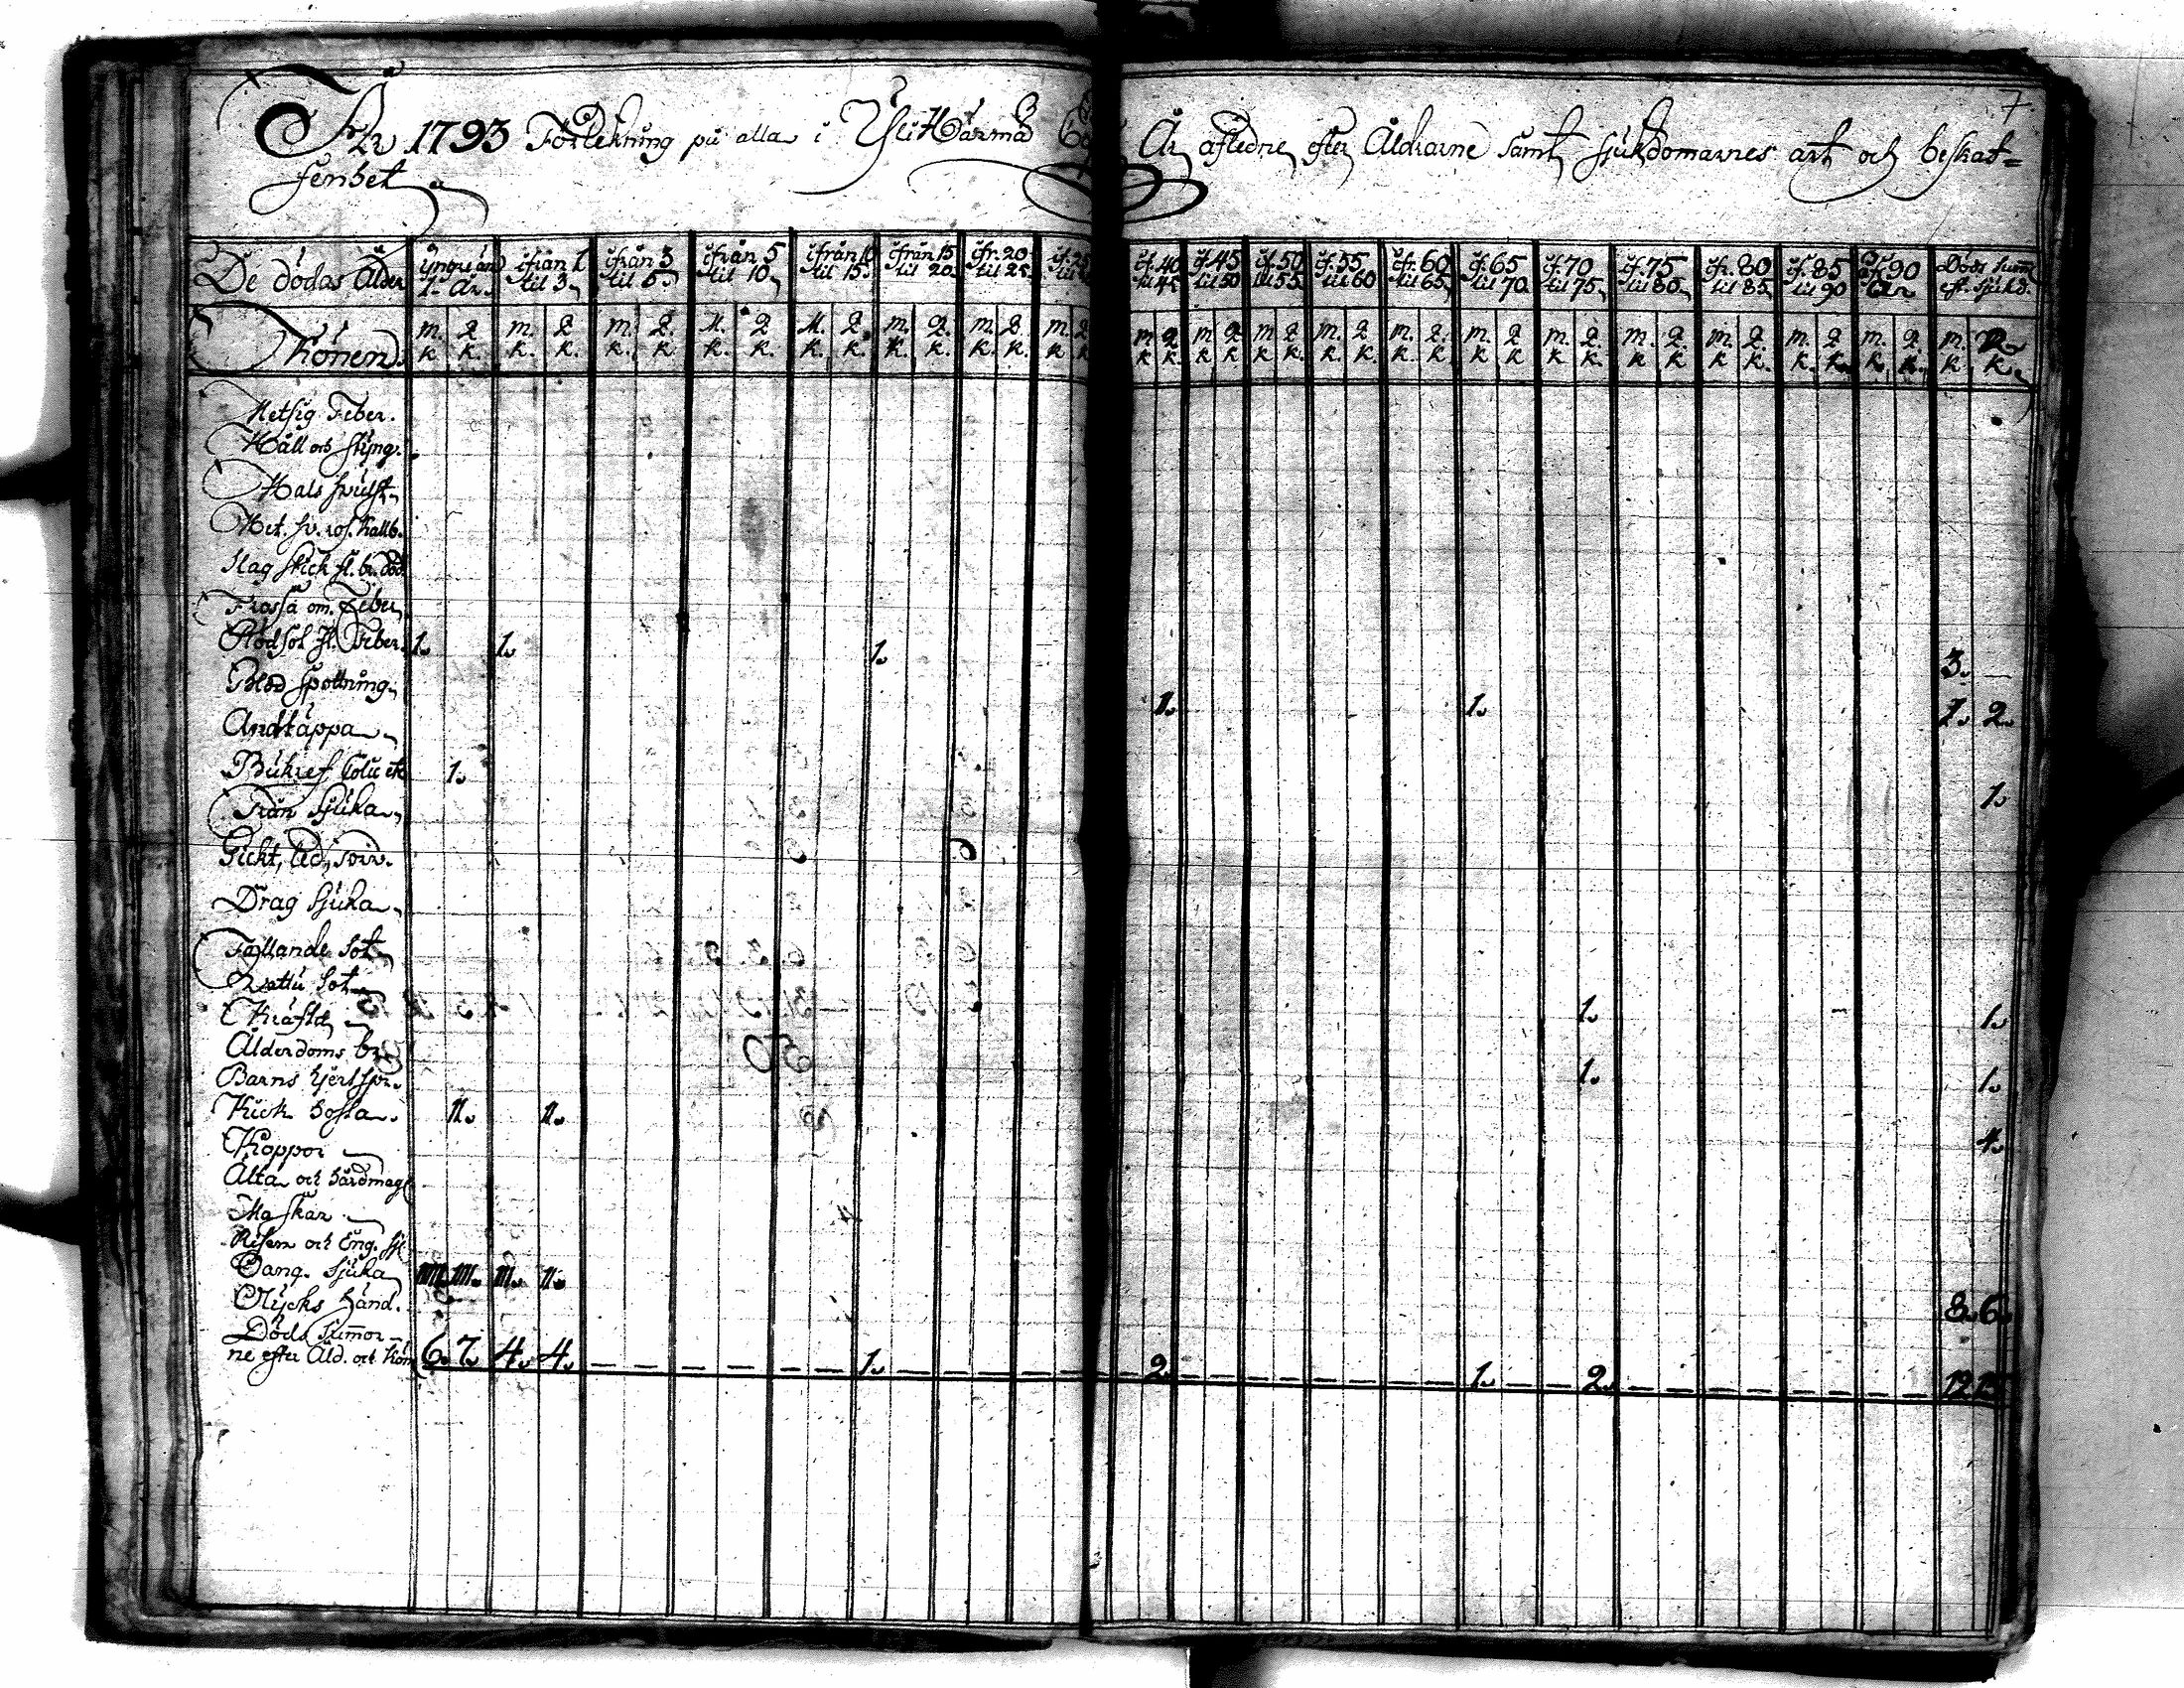 7
År 1793 Förtekning på alla i Yli Härmä År afledne efter Åldrarne samt sjukdomarnes art och beskaf=
fenhet
De dödas Ålder yngre än 1. år. ifrån 1 til 3 ifrån 3 til 5 ifrån 5 til 10 ifrån 10 til 15 ifrån 15 til 20 ifr. 20 til 25 if. 40 if. 45 til 50 if. 50 til 55 if. 55 til 60 ifr. 60 til 65 if. 65 til 70 if. 70 til 75 if. 75 til 80 ifr. 80 til 85 if. 85 til 90 90 Döds summ eft. sjukd.
Könen. m. k. q. k. m. k. q. k. m. k. q. k. M. k. q. k. M. k. q. k. m. k. q. k. m. k. q. k. m. k m k q k m k q k m k q k. m. k q k m. k. q. k. m. k q k m. k q. k. m. k q. k m. k q. k. m. k. q k. m. k. q. k. m. k q k
Hetsig Feber.
Håll och styng.
Hals svulst
Het. sv. ros. kallb.
Slag stick fl. br. död
Frossa om. Feber
Rödsot fl. Feber. 1. 1. 1. 3. —
Blod spottning
Andtäppa 1. 1. 1. 2.
Bukref Colic etc 1. 1.
Trån sjuka
Gickt, led, torv.
Drag sjuka
Fallande sot
Vattu sot
Kräfta 1. 1.
Ålderdoms br. 1. 1.
Barns hjertspr.
Kick hosta. 11. 11. 4.
Koppor
Älta och hårdmag
Maskar
Risen och Eng. sj.
Oang. sjuka 1111. 111. 11. 8. 6.
Olycks händ.
Döds summor-
ne efter Åld. och kön 6. 7. 4. 4. 1. 2. 1. 2. 12 15